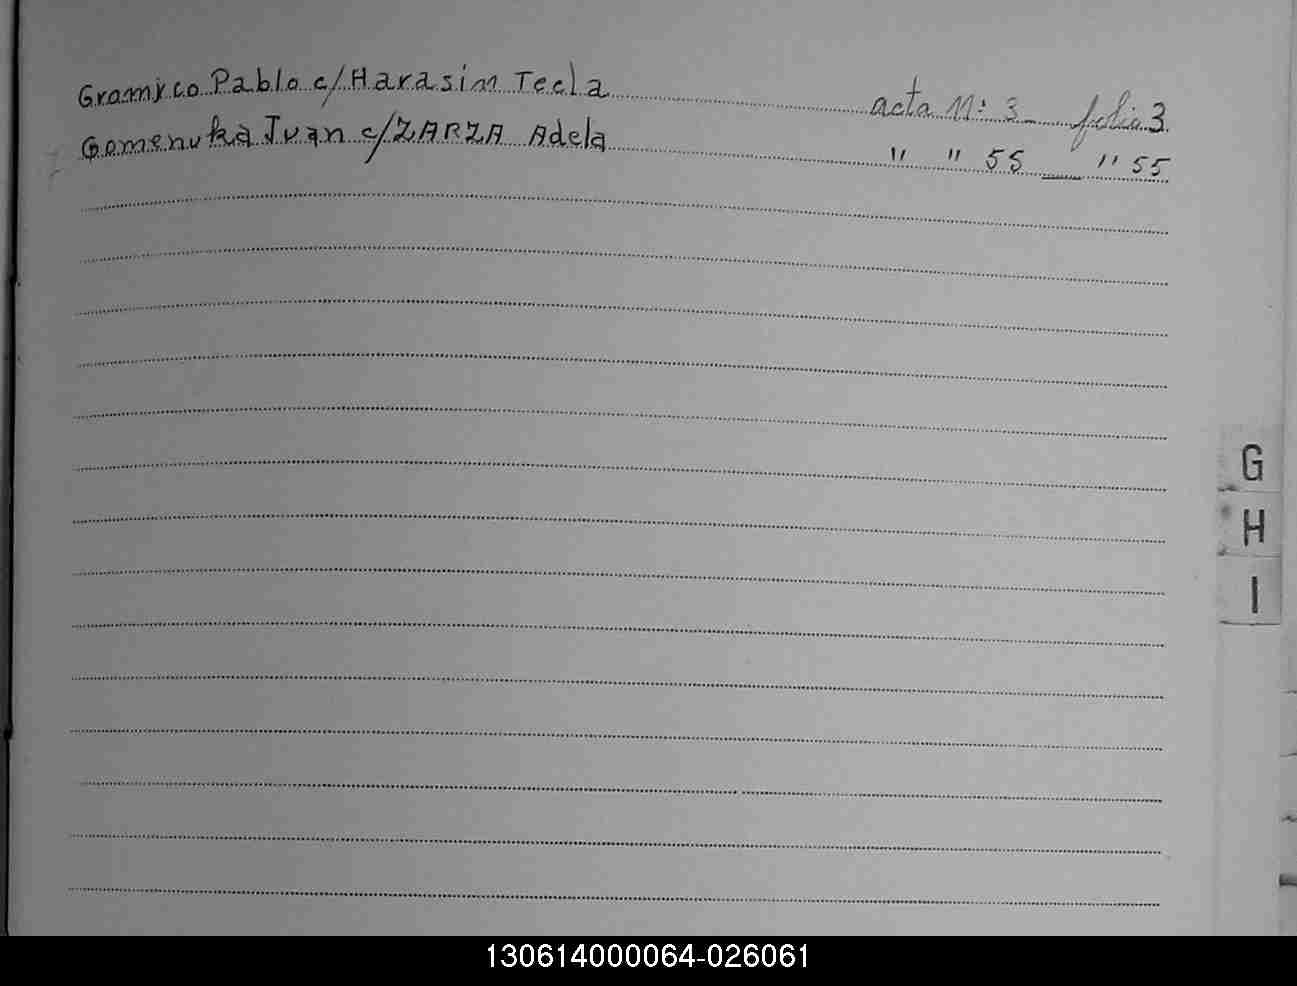 Gramyco Pablo c/Harasim Tecla acta Nº 3 folio 3
Gomenuka Juan c/ZARZA Adela " " 55 " 55
G
H
I
130614000064-026061